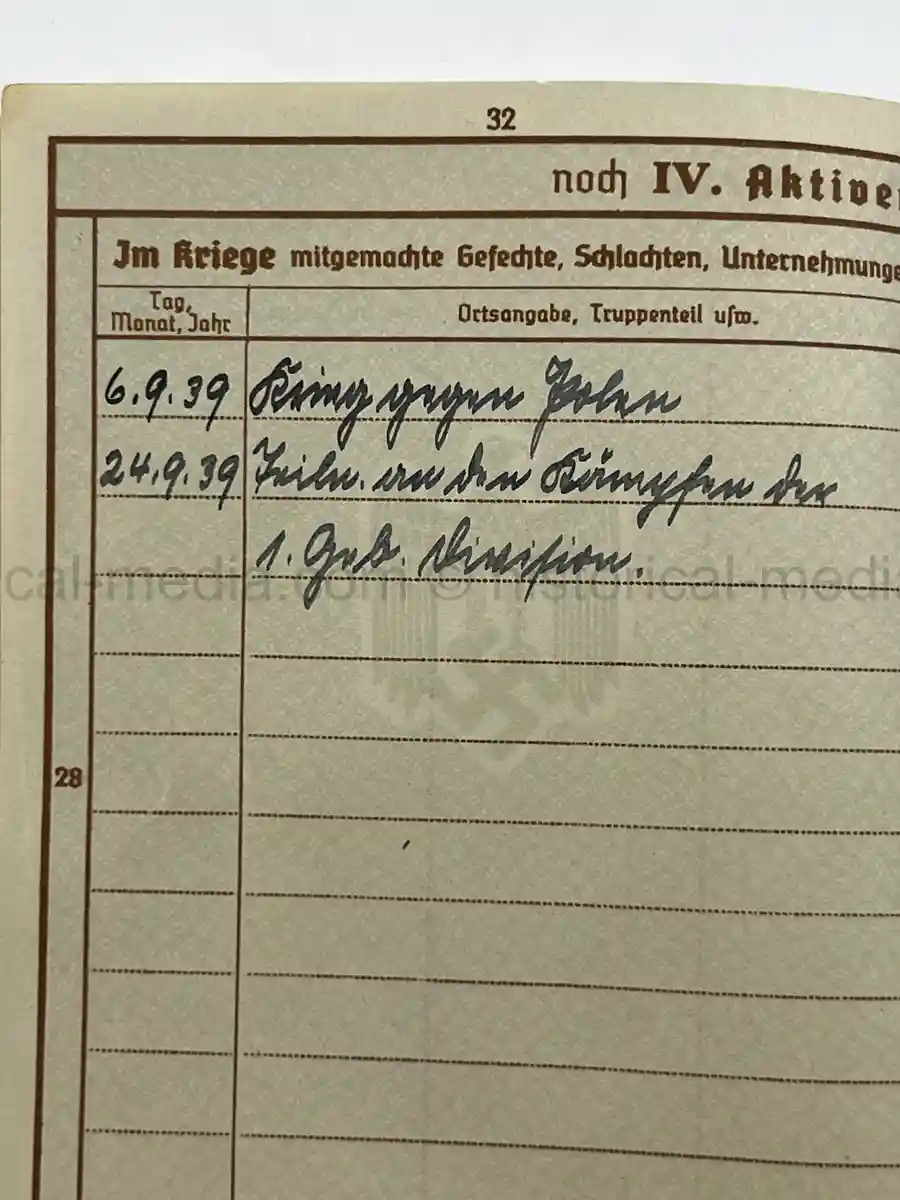 32
noch IV. Aktive
Im Kriege mitgemachte Gefechte, Schlachten, Unternehmunge
Tag,
Monat, Jahr
Ortsangabe, Truppenteil usw.
6.9.39 Krieg gegen Polen
24.9.39 Teiln. an den Kämpfen der
1. Geb. Division.
cal-media.com © historical-media
28